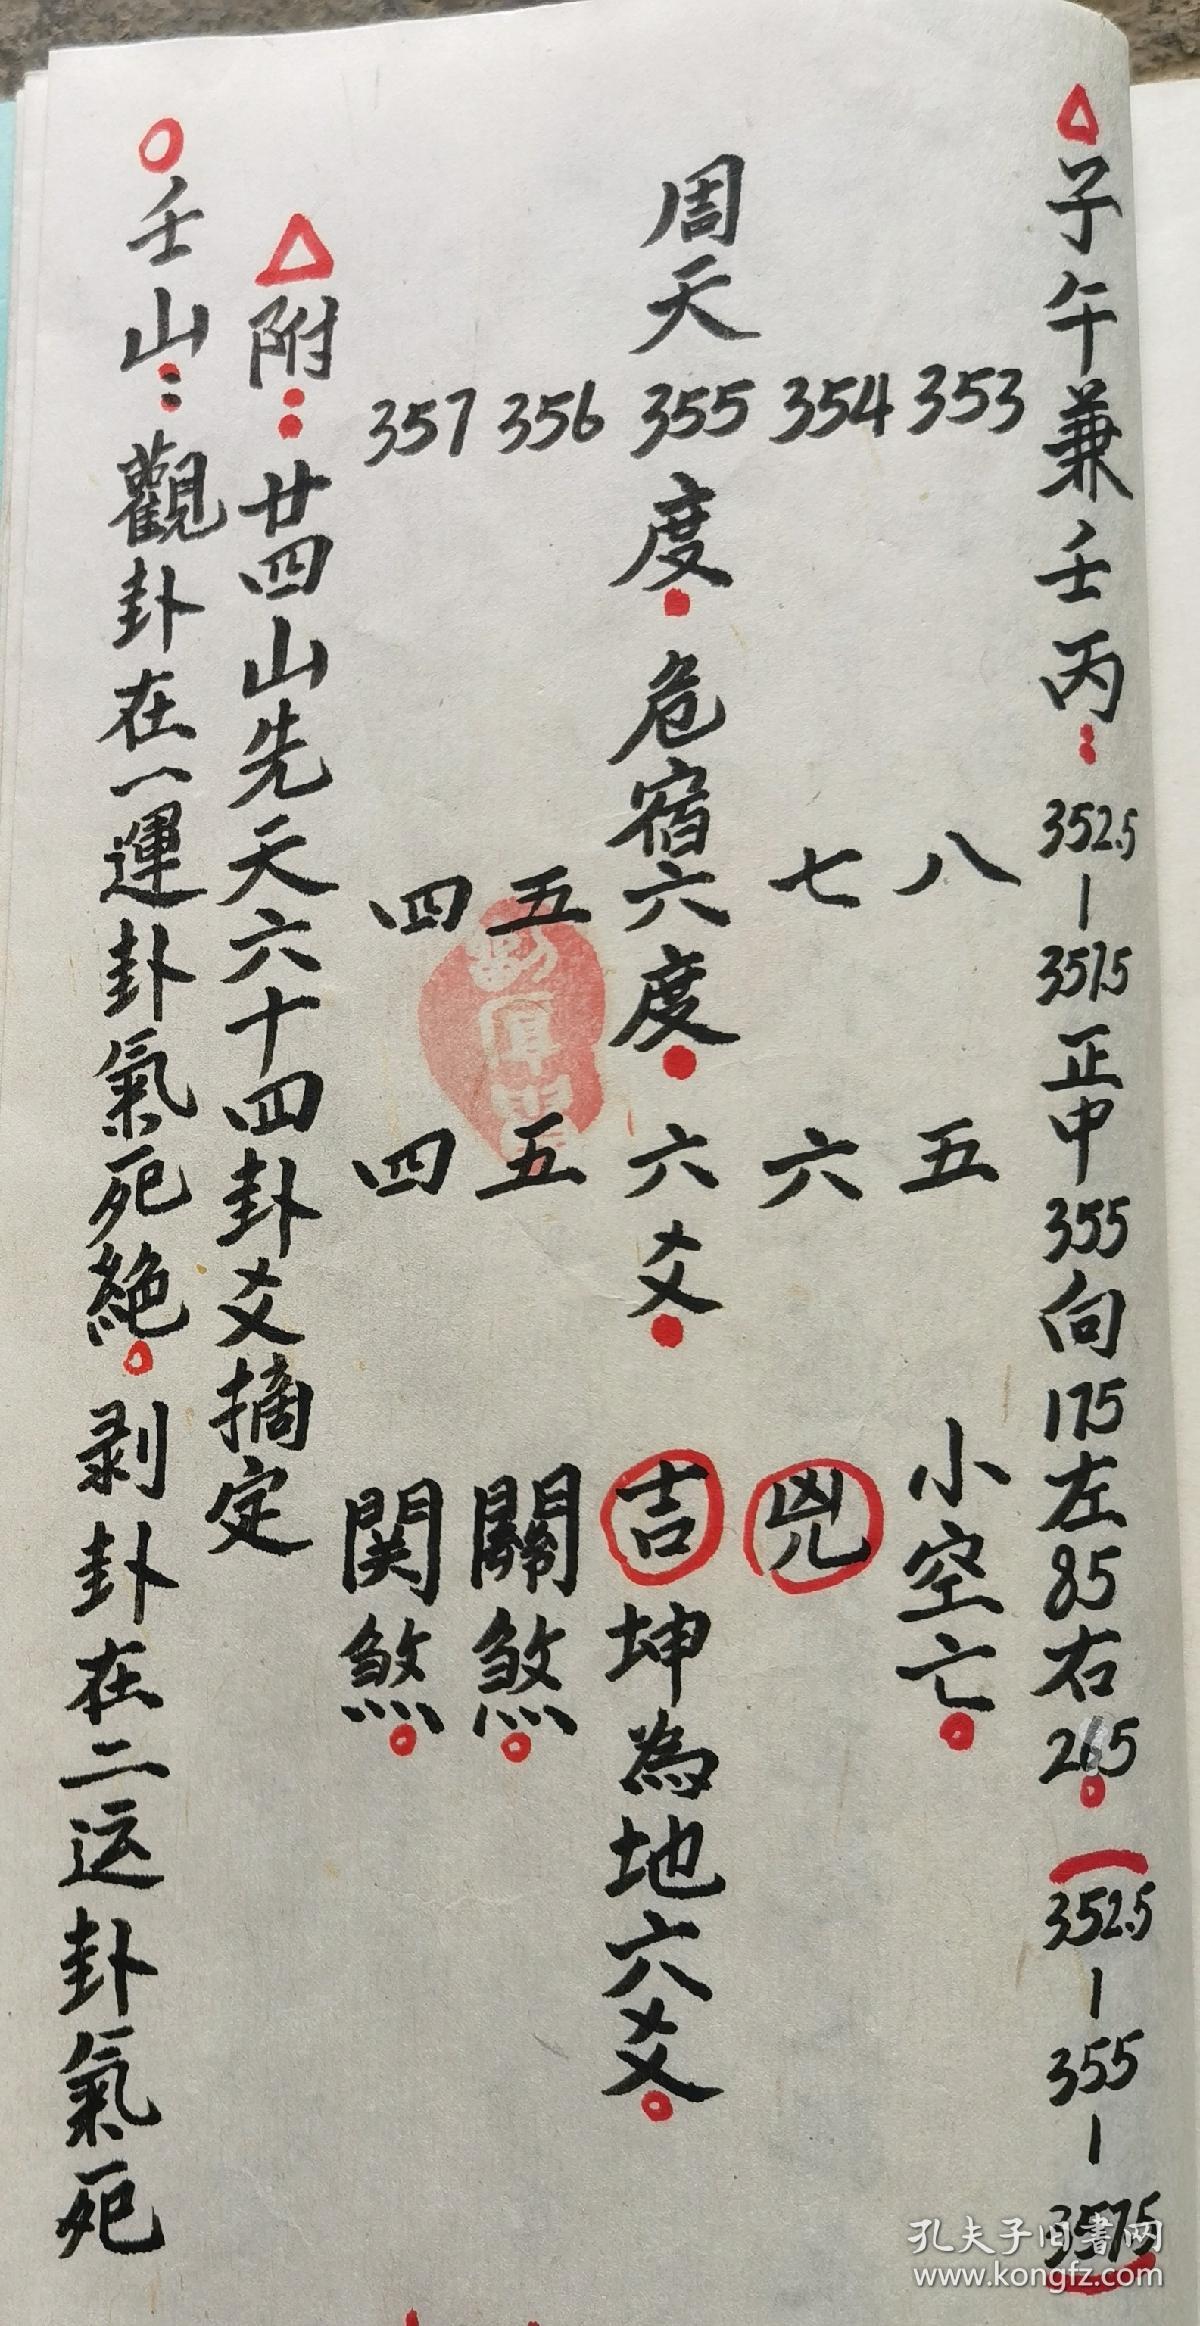 子午兼壬丙：352.5－357.5正中355向175左85右265。（352.5－355－357.5）
353 八 五 小空亡。
354 七 六 兇
周天355度。危宿六度。六爻。吉坤為地六爻。
356 五 五 關煞。
357 四 四 関煞。
附：廿四山先天六十四卦爻摘定
壬山：觀卦在一運卦氣死絕。剥卦在二运卦氣死
孔夫子旧书网
www.kongfz.com